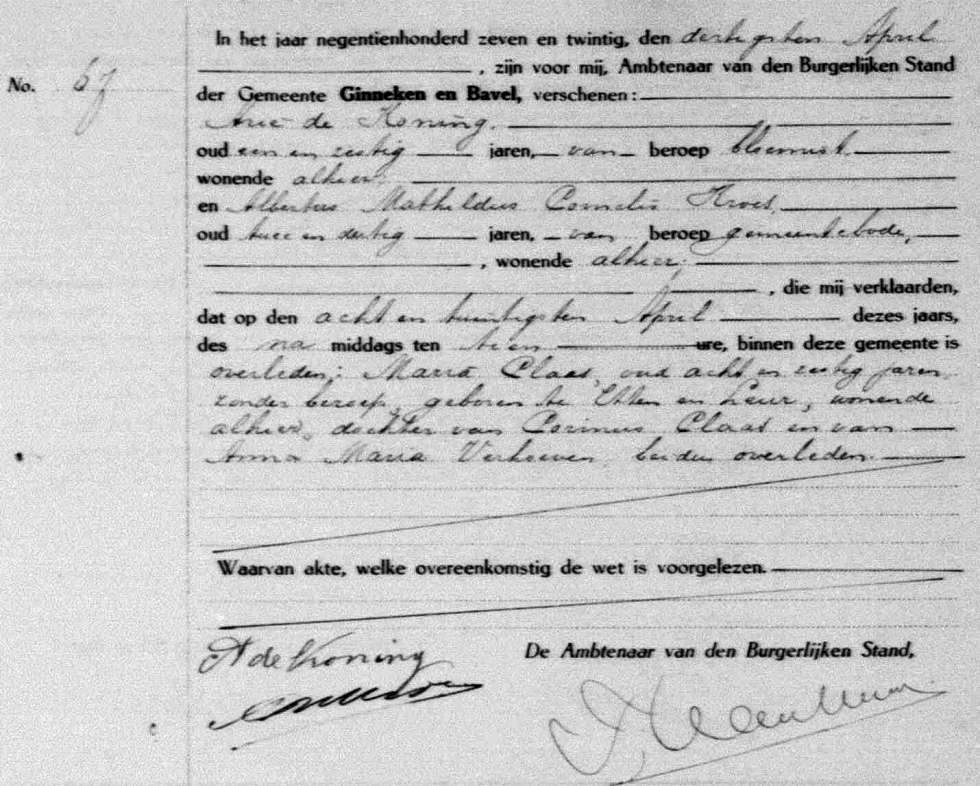 In het jaar negentienhonderd zeven en twintig, den dertigsten April
, zijn voor mij, Ambtenaar van den Burgerlijken Stand
No. 67
der Gemeente Ginneken en Bavel, verschenen:
Arie de Koning,
oud een en zestig jaren, van beroep bloemist
wonende alhier,
en Albertus Mathildus Cornelis Kroes,
oud twee en dertig jaren, van beroep gemeentebode,
, wonende alhier;
, die mij verklaarden,
dat op den acht en twintigsten April dezes jaars,
des na middags ten tien ure, binnen deze gemeente is
overleden: Maria Claas, oud acht en zestig jaren,
zonder beroep, geboren te Etten en Leur, wonende
alhier, dochter van Corinus Claas en van
Anna Maria Verhoeven, beiden overleden.
Waarvan akte, welke overeenkomstig de wet is voorgelezen.
A de Koning
De Ambtenaar van den Burgerlijken Stand,